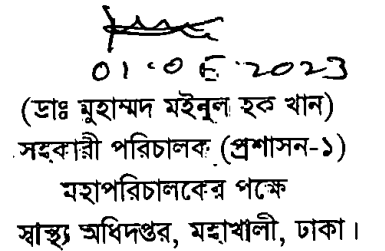 01.08.2023
(ডাঃ মুহাম্মদ মইনুল হক খান)
সহকারী পরিচালক (প্রশাসন-১)
মহাপরিচালকের পক্ষে
স্বাস্থ্য অধিদপ্তর, মহাখালী, ঢাকা।